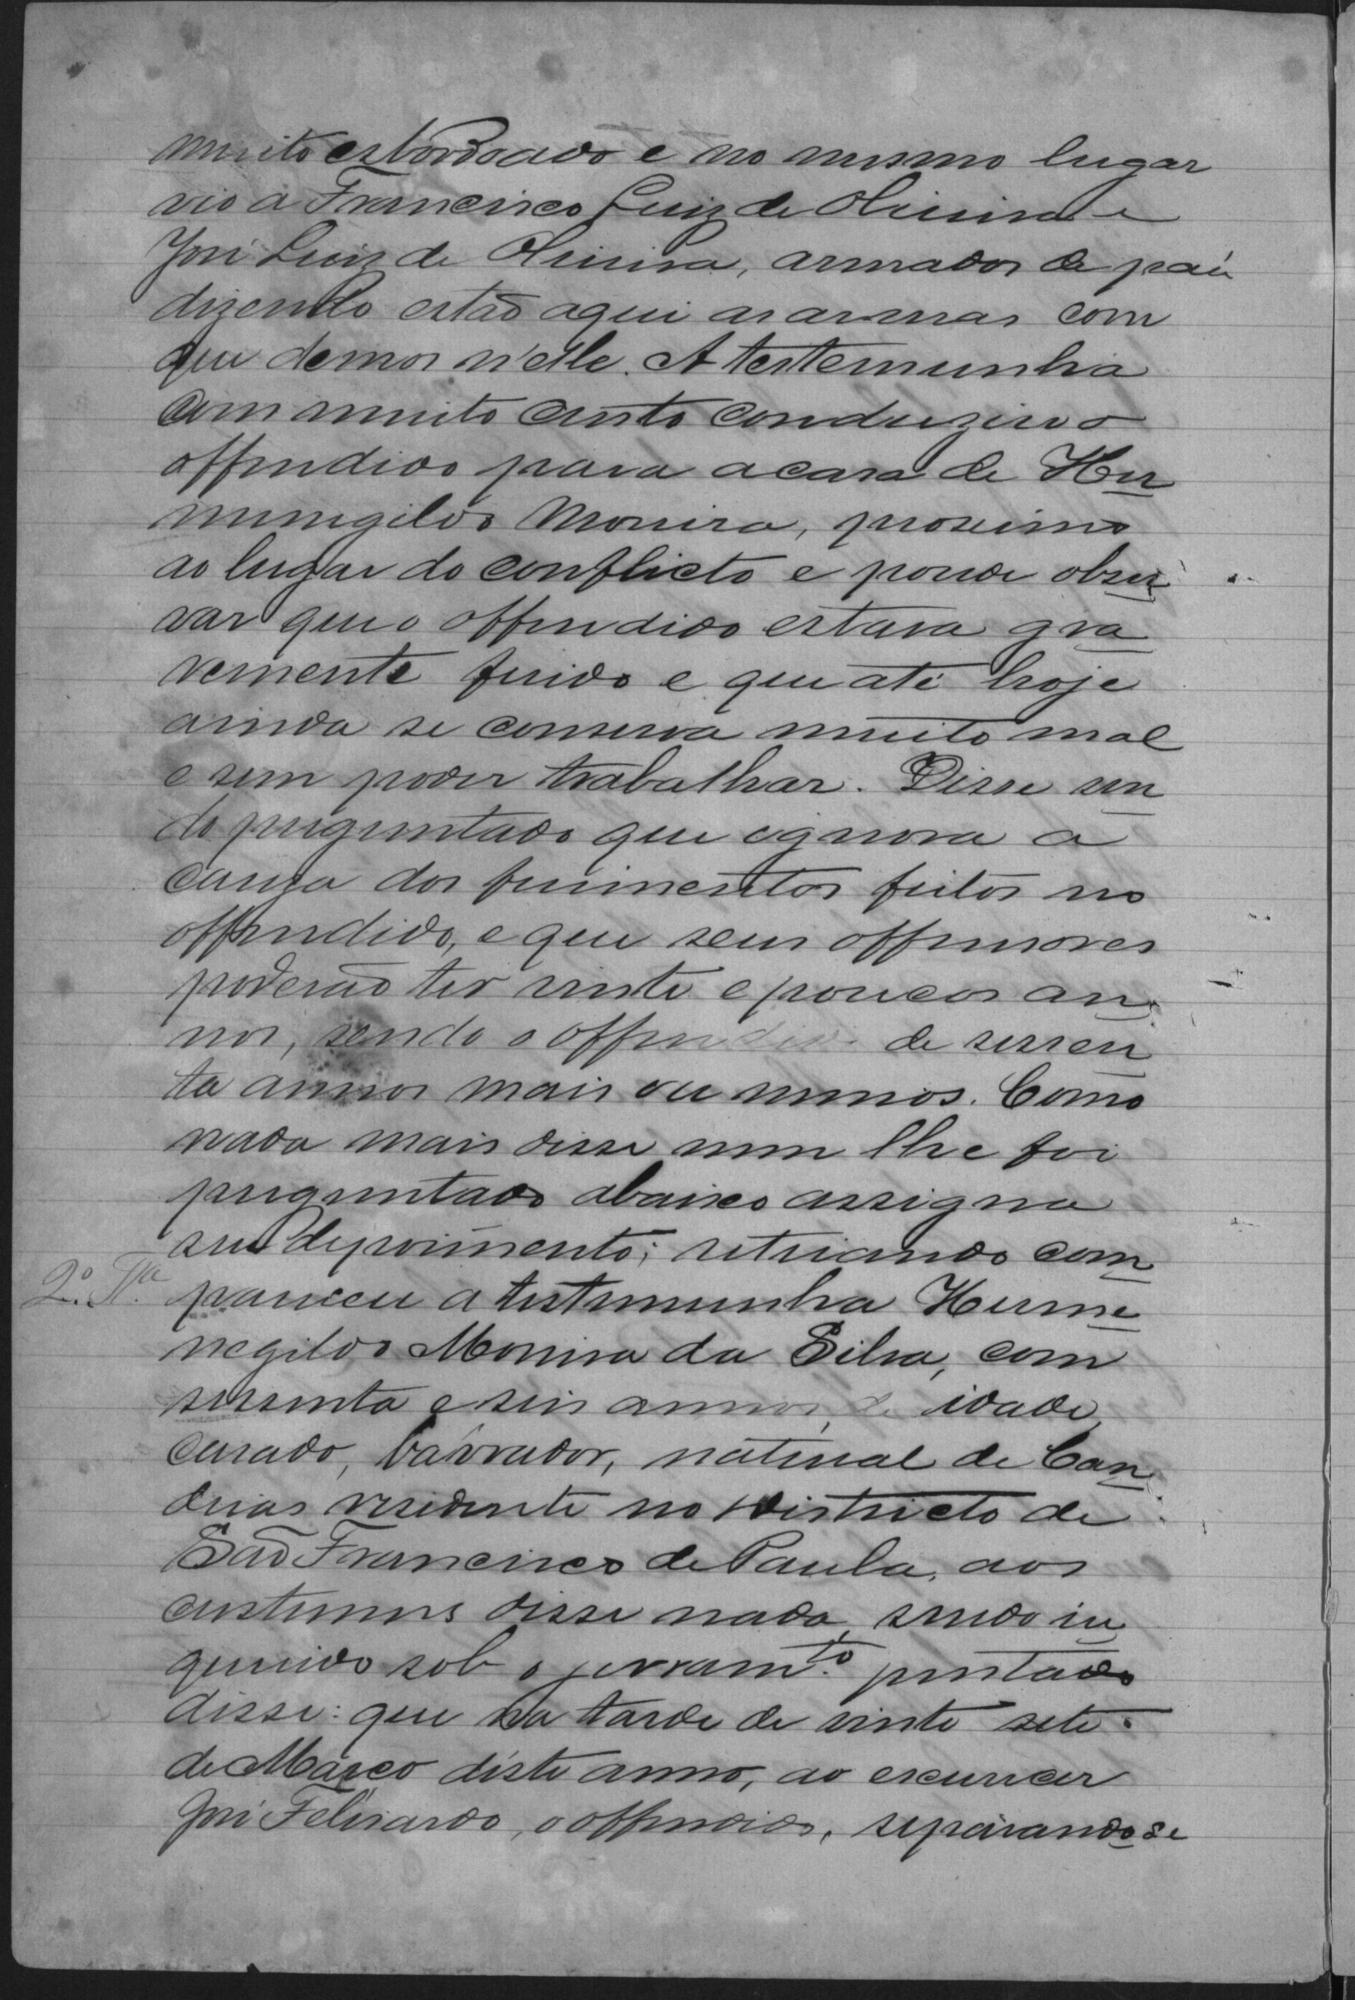 muito esbordoado e no mesmo lugar
vio a Francisco Luiz de Oliveira e
José Luiz de Oliveira, armados de páu
dizendo estão aqui as armas com
que demos n'elle. A testemunha
com muito custo conduzio o
offendido para a casa de Her
minigildo Moreira, proximo
ao lugar do conflicto e poude obser
var que o offendido estava gra
vemente ferido e que até hoje
ainda se conserva muito mal
e sem poder trabalhar. Disse sen
do perguntado que ignora a
causa dos ferimentos feitos no
offendido, e que seus offensores
poderão ter vinte e poucos an
nos, sendo o offendido de sessen
ta annos mais ou menos. Como
nada mais disse nem lhe foi
perguntado abaixo assigna
seu depoimento; retirando com
2.º Tª. pareceu a testemunha Herme
negildo Moreira da Silva, com
sessenta e seis annos de idade,
casado, lavrador, natural de Can
deias residente no districto de
São Francisco de Paula, aos
custumes disse nada, sendo in
querido sob o juramtº prestado
disse: que na tarde de vinte sete
de Março diste anno, ao escurecer
José Felisardo, o offendido, separando se